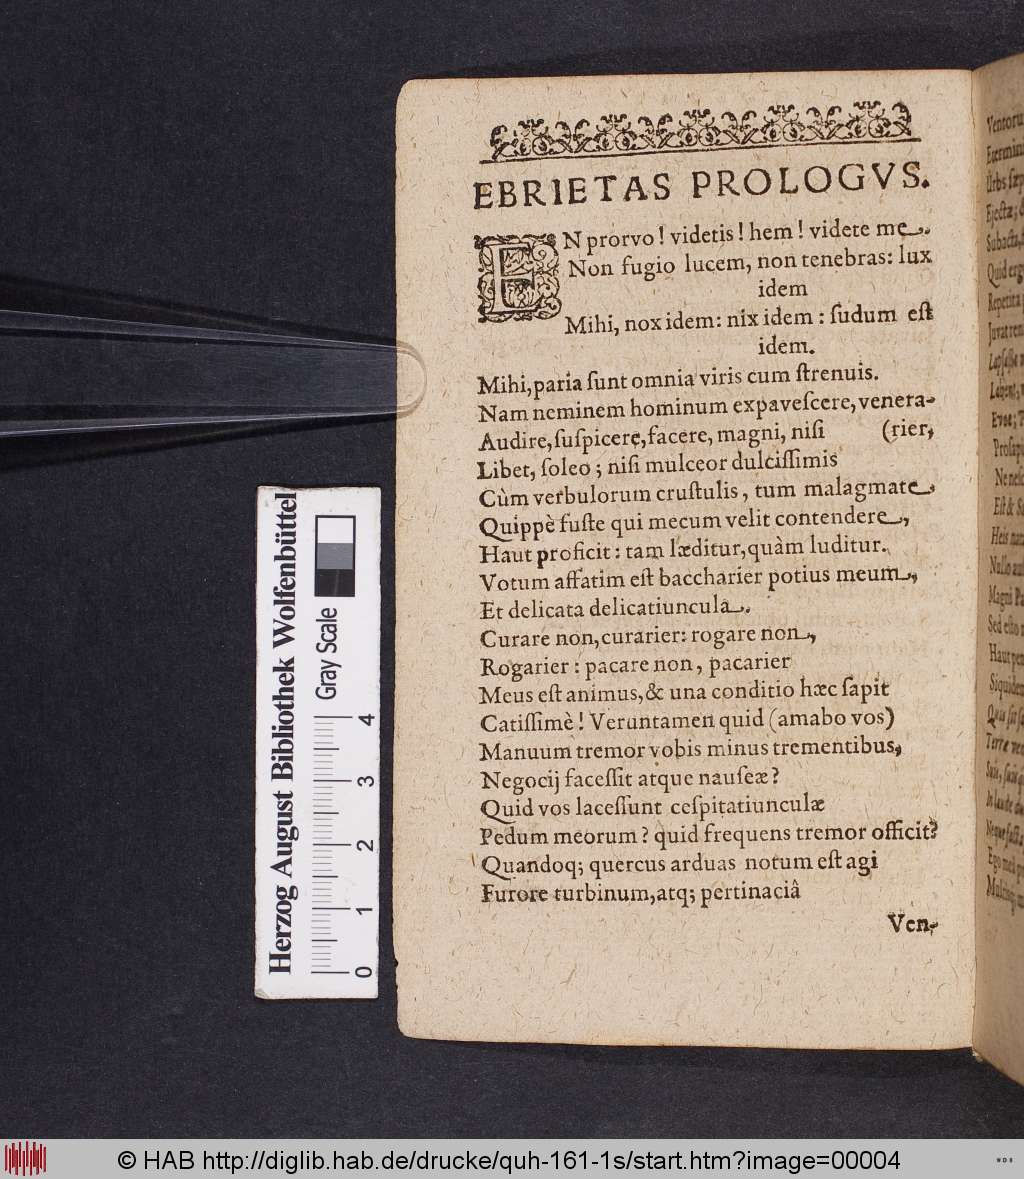 EBRIETAS PROLOGVS.
EN prorvo! videtis! hem! videte me.
Non fugio lucem, non tenebras: lux
idem
Mihi, nox idem: nix idem: sudum est
idem.
Mihi, paria sunt omnia viris cum strenuis.
Nam neminem hominum expavescere, venera-
Audire, suspicere, facere, magni, nisi (rier,
Libet, soleo; nisi mulceor dulcissimis
Cùm verbulorum crustulis, tum malagmate.
Quippè fuste qui mecum velit contendere,
Haut proficit: tam læditur, quàm luditur.
Votum affatim est baccharier potius meum,
Et delicata delicatiuncula.
Curare non, curarier: rogare non,
Rogarier: pacare non, pacarier
Meus est animus, & una conditio hæc sapit
Catissimè! Veruntamen quid (amabo vos)
Manuum tremor vobis minus trementibus,
Negocij facessit atque nauseæ?
Quid vos lacessunt cespitatiunculæ
Pedum meorum? quid frequens tremor officit?
Quandoq; quercus arduas notum est agi
Furore turbinum, atq; pertinaciâ
Ven-
Herzog August Bibliothek Wolfenbüttel
Gray Scale
0 1 2 3 4
© HAB http://diglib.hab.de/drucke/quh-161-1s/start.htm?image=00004